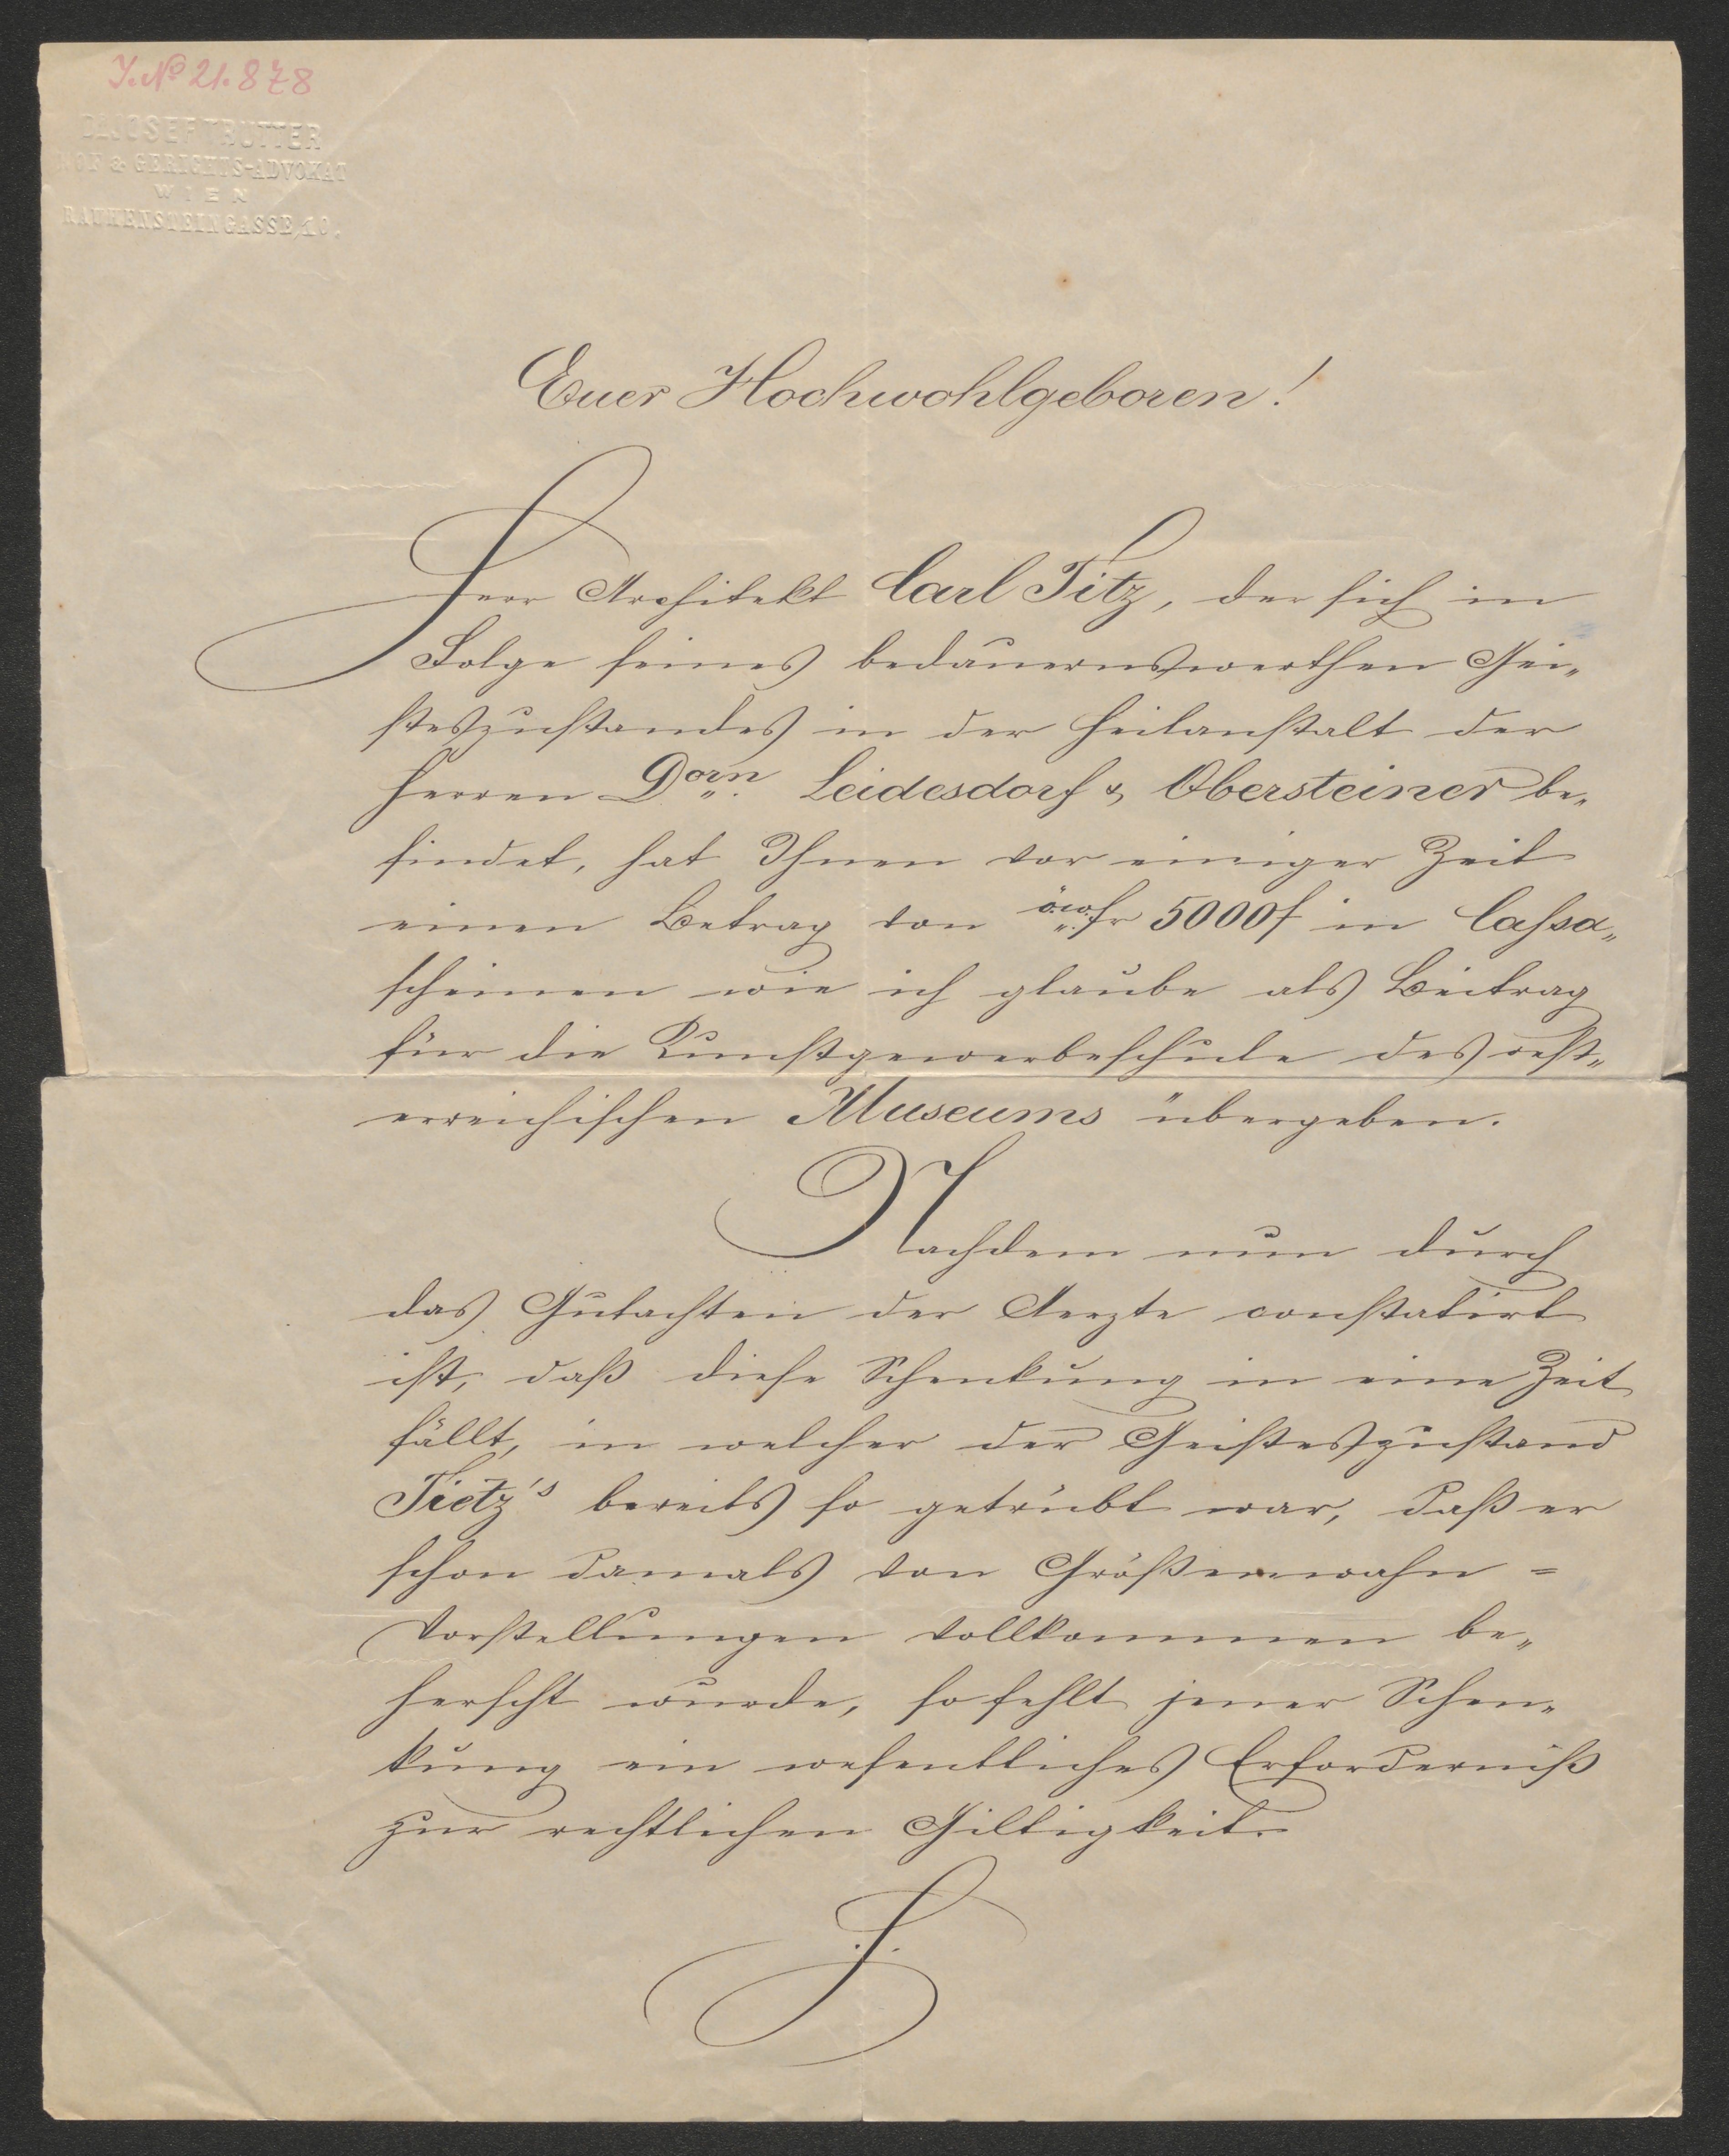 J. No 21.878
DR JOSEF TRUTTER
HOF & GERICHTS-ADVOKAT
WIEN
RAUHENSTEINGASSE, 10.
Euer Hochwohlgeboren!
Herr Architekt Carl Titz, der sich in
Folge seines bedauernswerthen Gei„
steszustandes in der Heilanstalt der
Herren Dorn. Leidesdorf & Obersteiner be„
findet, hat Ihnen vor einiger Zeit
einen Betrag von ö.w. fr 5000f in Cassa„
scheinen wie ich glaube als Beitrag
für die Kunstgewerbeschule des oest„
erreichischen Museums übergeben.
Nachdem nun durch
das Gutachten der Aerzte constatirt
ist, daß diese Schenkung in eine Zeit
fällt, in welcher der Geisteszustand
Tietz's bereits so getrübt war, daß er
schon damals von Größenwahn =
Vorstellungen vollkommen be„
herscht wurde, so fehlt jener Schen„
kung ein wesentliches Erforderniß
zur rechtlichen Giltigkeit.